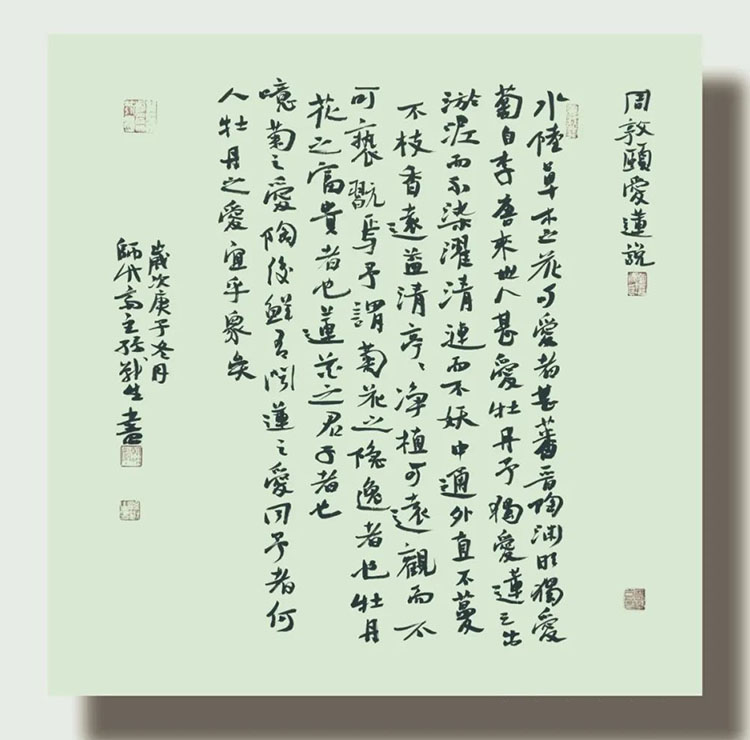 周敦頤愛蓮說
水陸草木之花可愛者甚蕃晋陶渊明獨愛
菊自李唐來世人甚愛牡丹予獨愛蓮之出
淤泥而不染濯清漣而不妖中通外直不蔓
不枝香遠益清亭、净植可遠觀而不
可褻翫焉予謂菊花之隐逸者也牡丹
花之富貴者也蓮花之君子者也
噫菊之愛陶後鮮有聞蓮之愛同予者何
人牡丹之愛宜乎眾矣
歲次庚子冬月
師代齋主 生書